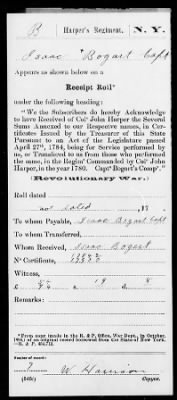 B | Harper's Regiment, | N. Y.
Isaac Bogart Capt
Appears as shown below on a
Receipt Roll*
under the following heading:
"We the Subscribers do hereby Acknowledge
to have Received of Col° John Harper the Several
Sums Annexed to our Respective names, in Cer-
tificates Issued by the Treasurer of this State
Pursuant to an Act of the Legislature passed
April 27th, 1784, being for Service performed by
us, or Transfered to us from those who performed
the same, in the Regim' Commanded by Col° John
Harper, in the year 1780. Capt° Bogert's Comp'."
(Revolutionary War.)
Roll dated
not dated, 17
To whom Payable, Isaac Bogart Capt
To whom Transferred,
Whom Received, Isaac Bogart
N° Certificates,
Witness,
19 8
Remarks:
*From copy made in the R. & P. Office, War Dep., in October,
of an original record borrowed from the State of New York.
—R. & P.
Number of record:
7 W. Harrison
Copyist.